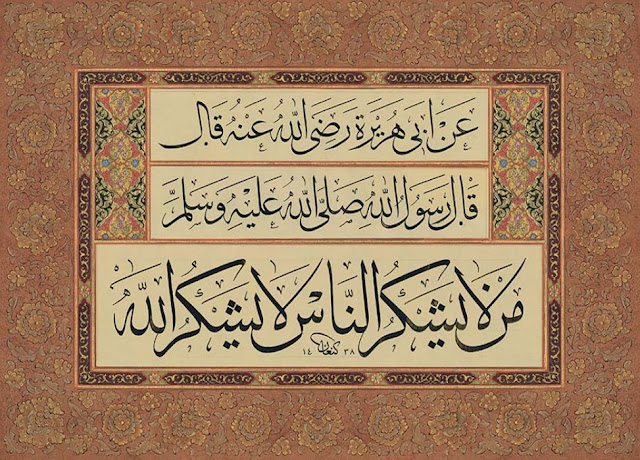 عَنْ اَبِى هُرَيْرَةَ رَضِىَ اللّٰهُ عَنْهُ قَالَ
قَالَ رَسُولُ اللّٰهِ صَلَّى اللّٰهُ عَلَيْهِ وَسَلَّمَ
مَنْ لَا يَشْكُرُ النَّاسَ لَا يَشْكُرُ اللّٰهَ
١٤ ٣٨